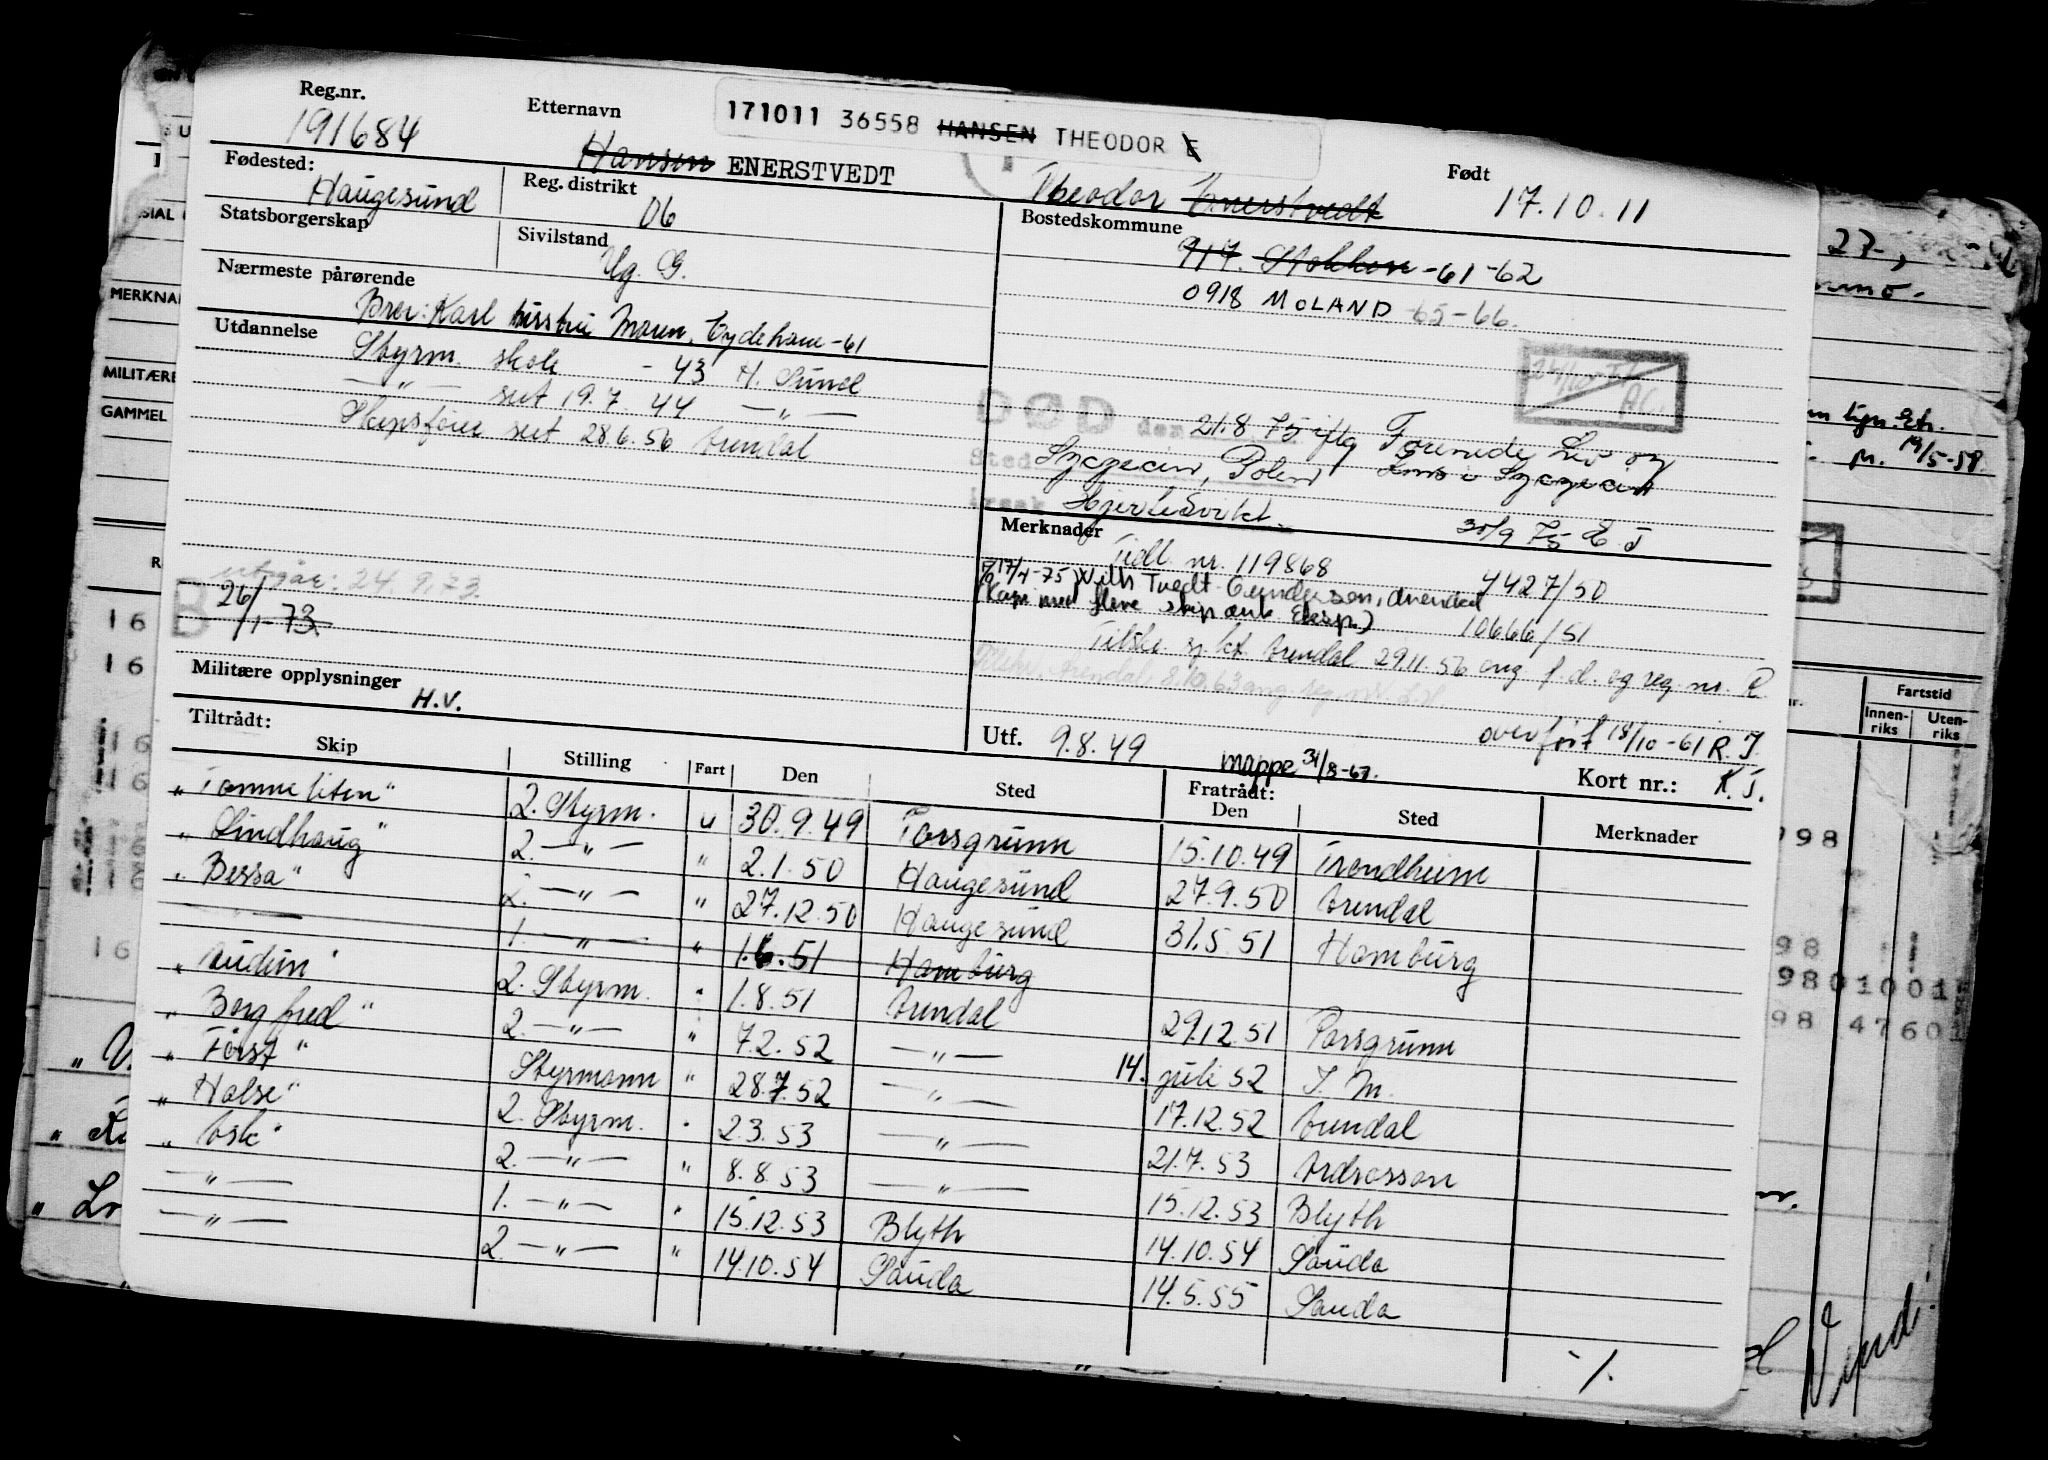 171011 36558 HANSEN THEODOR E
Reg.nr.
191684
Etternavn
Hansen ENERSTVEDT
Theodor Enerstvedt
Født
17.10.11
Fødested:
Haugesund
Reg. distrikt
06
Statsborgerskap
Sivilstand
Ug. G.
Bostedskommune
917. Stokken -61-62
0918 MOLAND 65-66.
Nærmeste pårørende
Bror: Karl Moren, Eydehavn -61
Utdannelse
Styrm. skole - 43 H. Sund
— " — sert 19.7.44 — " —
Skipsfører sert 28.6.56 Arendal
DØD den 21.8 75 iflg Forenede Liv og
Sted Szczecin, Polen i Szczecin
årsak Hjertesvikt.
30/9 75 E. J
Merknader
Tidl. nr. 119868
4427/50
17/4-75 Nils Tvedt Gundersen, Arendal
(Kape med flere skip Eksp.)
10666/51
Tilskr. sj. kt. Arendal 29.11.56 ang f. d. og reg. nr. R.
Tilskr. Arendal 8.10.63 ang reg. nr.
utgår: 24.9.73.
B 26/1-73
Militære opplysninger
H.V.
overført 18/10-61 R. J.
Utf. 9.8.49
mappe 31/8-67.
Kort nr.: K. J.
Tiltrådt:
Skip Stilling Fart Den Sted Fratrådt: Den Sted Merknader
"Tomme liten" 2. Styrm. u 30.9.49 Porsgrunn 15.10.49 Trondheim
"Lindhaug" 2. — " — " 2.1.50 Haugesund 27.9.50 Arendal
"Bessa" 2. — " — " 27.12.50 Haugesund 31.5.51 Hamburg
— " — 1. — " — " 1.6.51 Hamburg
"Audun" 2. Styrm. " 1.8.51 Arendal 29.12.51 Porsgrunn
"Borgfred" 2. — " — " 7.2.52 — " — 14. juli 52 I. M.
"Forst" Styrmann " 28.7.52 — " — 17.12.52 Arendal
"Halse" 2. Styrm. " 2.3.53 — " — 21.7.53 Ardrossan
"Ask" 2. — " — " 8.8.53 — " — 15.12.53 Blyth
— " — 1. — " — " 15.12.53 Blyth 14.10.54 Sauda
— " — 2. — " — " 14.10.54 Sauda 14.5.55 Sauda
./.
MERKNA
MILITÆRE
GAMMEL
Fartstid
Innen-riks Uten-riks
998
98
9801001
98 4760